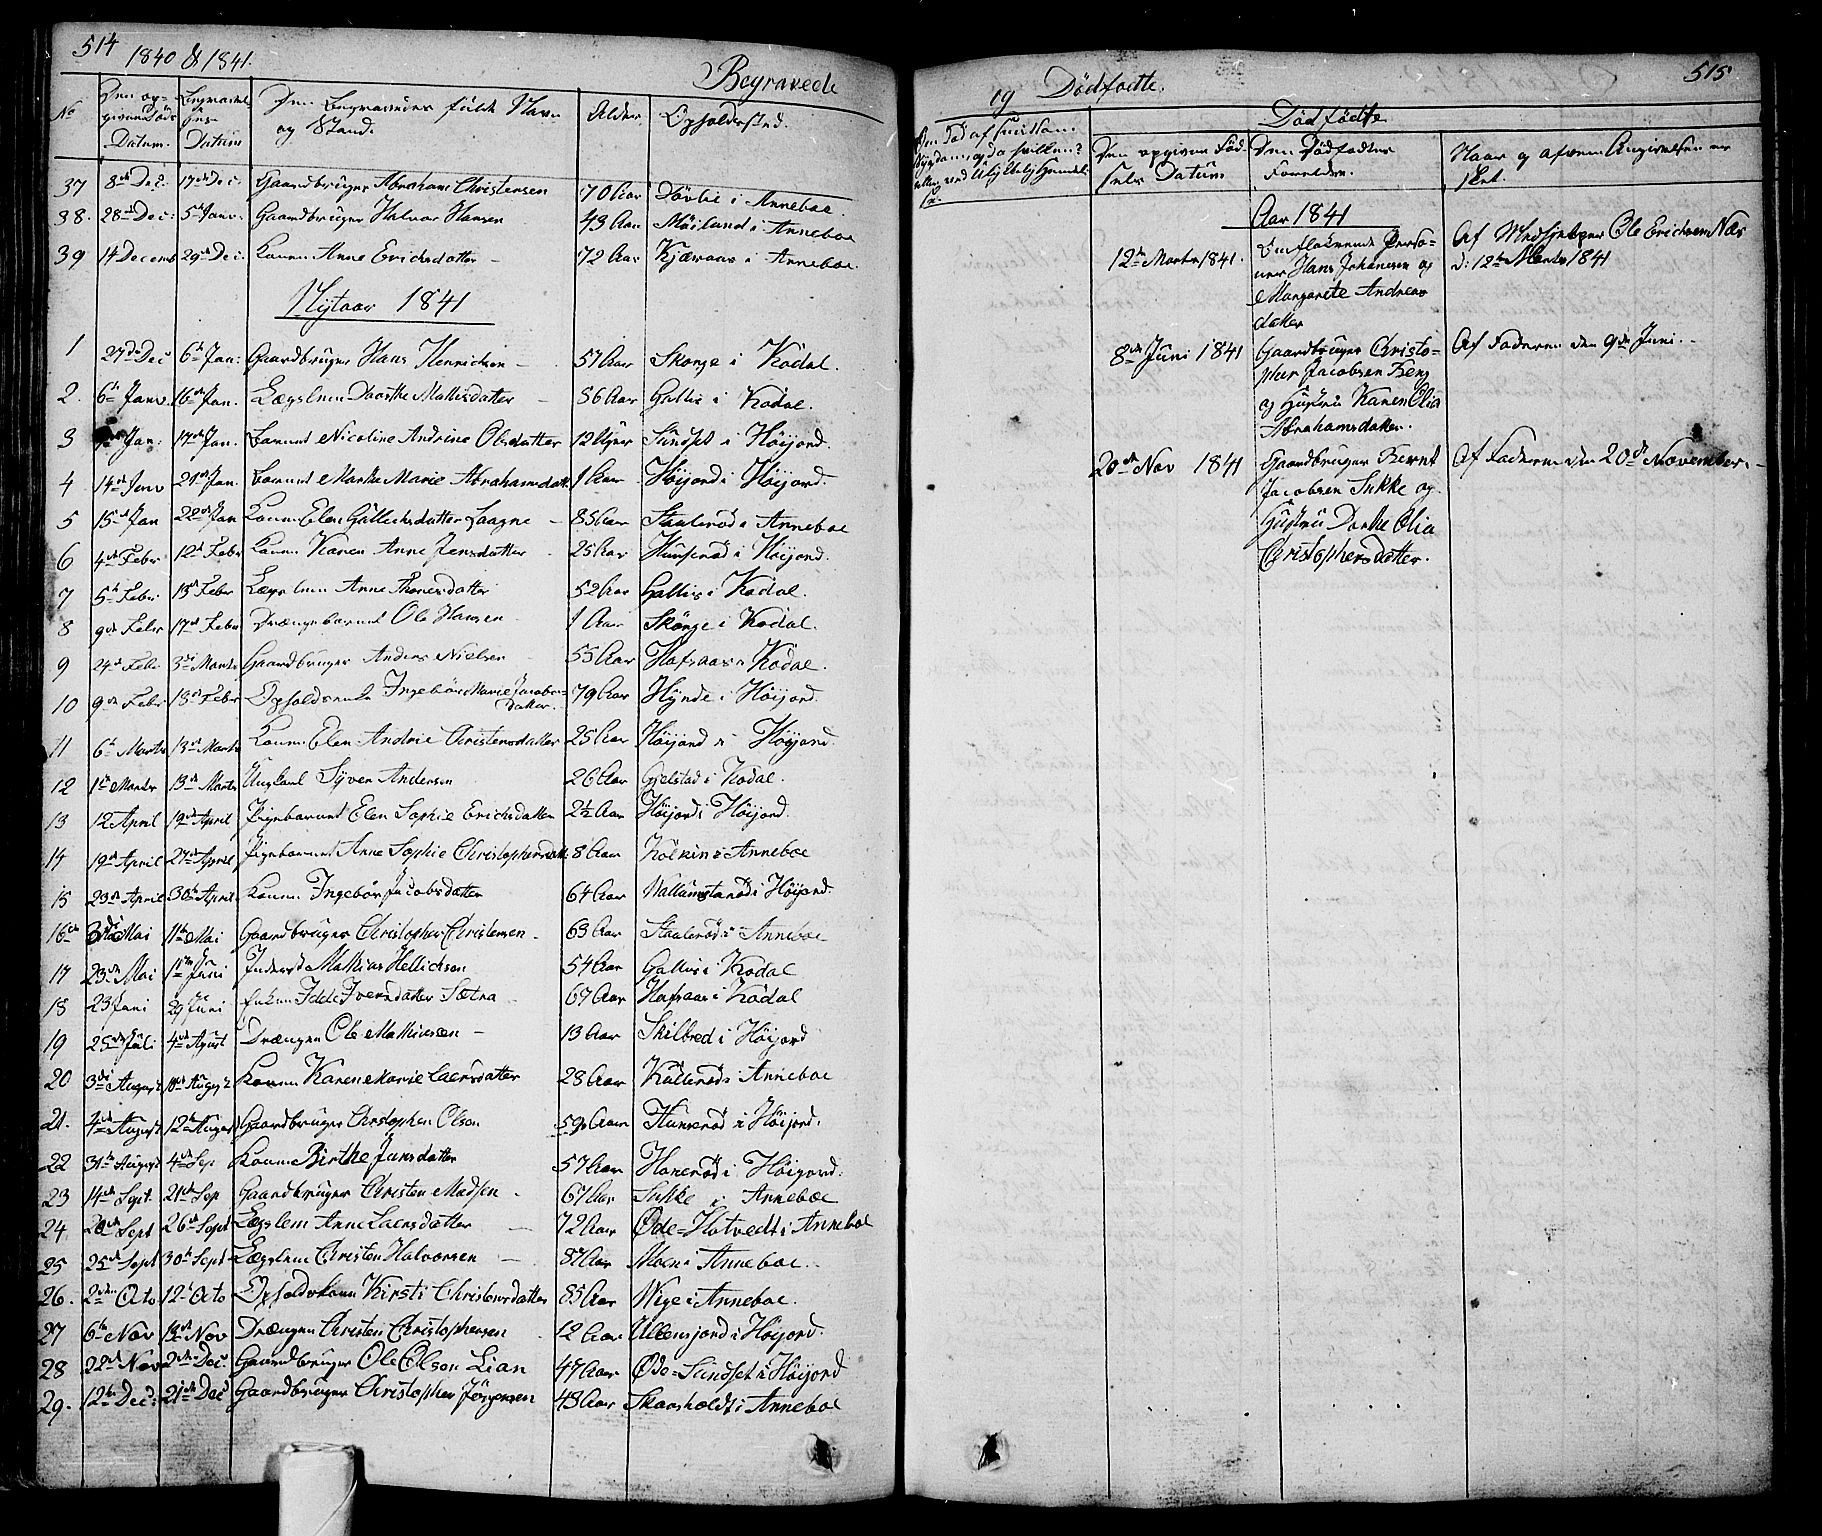 514 1840 & 1841.
Begravede
No
Den op-
givne Døds
Datum.
Begravel
ses
Datum
Den Begravedes fulde Navn
og Stand.
Alder.
Opholdssted.
37 8de Dec: 17de Dec: Gaardbruger Abraham Christensen 70 Aar i Anneboe.
38. 28de Dec: 5te Janv: Gaardbruger Halvor Hansen 43 Aar Möiland i Anneboe
39 14 Decemb 29de Dec: Konen Anne Ericksdatter – 72 Aar Kjæraas i Anneboe.
Nytaar 1841
1 27de Dec 6te Jan: Gaardbruger Hans Henrichsen – 57 Aar Skorge i Kodal.
2. 6te Janv. 16de Jan. Lægslem Dorthe Mathisdatter 86 Aar Gallis i Kodal.
3 Jan: 17de Jan. Barnet Nicoline Andrine Olsdatter 12 Uger Sundset i Höijord.
4 14de Janv 21de Jan. Barnet Marthe Marie Abrahamsdatt 1 Aar Höijord i Höijord.
5 15de Jan 22de Jan Konen Elen Gulliksdatter Laagne – 85 Aar Staalerød i Anneboe
6 4de Febr 12te Febr Konen Karen Anne Jensdatter 25 Aar Hunserød i Höijord.
7 5te Febr 13de Febr Lægslem Anne Thoresdatter 52 Aar Gallis i Kodal.
8 9de Febr 17de Febr Drængebarnet Ole Hansen 1 Aar Skorge i Kodal.
9 24de Febr 3de Marts Gaardbruger Anders Nielsen 55 Aar Hafsaas i Kodal.
10 9de Febr 18de Febr Opholdsenke Ingebör Marie Jacobs-
datter. 79 Aar Hynde i Höijord.
11 6te Marts 13de Marts Konen Elen Andrie Christensdatter 25 Aar Höijord i Höijord.
12 1te Marts 13de Marts Ungkarl Syver Andersen 26 Aar Gjelstad i Kodal.
13 12 April 19de April Pigebarnet Elen Sophie Ericksdatter 2½ Aar Höijord i Höijord.
14 19de April 27de April Pigebarnet Anne Sophie Christophersdatt. 8 Aar Kolkin i Anneboe
15 23de April 30te April Konen Ingebör Jacobsdatter 64 Aar i Höijord.
16de 3de Mai 11te Mai Gaardbruger Christopher Christensen – 63 Aar Staalerød i Anneboe
17 23de Mai 11te Juni Inderst Mathias Hellichsen 54 Aar Gallis i Kodal
18 23 Juni 29 Juni Enken Idde Iversdatter Sætra – 67 Aar Hafsaas i Kodal
19 25de Juli 4de Agust Drængen Ole Mathiasen – 13 Aar Skilbred i Höijord
20 3de August 10de August Konen Karen Marie Laersdatter 28 Aar Kullerød i Anneboe
21. 4de August 12te August Gaardbruger Christopher Olson 59 Aar Hunserød i Höijord.
22 31te August 4de Sep Konen Birthe Jansdatter 57 Aar Hanerød i Höijord.
23 14de Sept. 21de Sep Gaardbruger Christen Madsen – 67 Aar Sukke i Anneboe
24 20de Sept 26de Sept Lægslem Anne Laersdatter – 72 Aar Øde=Hotvedt i Anneboe
25 25de Sept 30te Sept Lægslem Christen Halvorsen – 87 Aar Moen i Anneboe.
26. 2den Octo 12te Octo Opholdskone Kirsti Christensdatter 85 Aar Wige i Anneboe.
27 6te Nov 13de Nov Drængen Christen Christophersen 12 Aar i Höijord.
28 22de Nov 2den Dec Gaardbruger Ole Olson Lian 47 Aar Øde=Sundset i Höijord
29. 12te Dec: 21de Dec Gaardbruger Christopher Jörgensen 48 Aar Skaarholdt i Anneboe
og Dødfødte. 515
Om Død af smitsom
Sygdom og da hvilken?
eller ved Ulykkelig Hændel-
se.
Dødfødte
Den opgivne Fød-
sels Datum
Den Dødfødtes
Forældre.
Naar og af hvem Angivelsen er
skeet.
Aar 1841
12te Marts 1841. Omflakkende Perso-
ner Hans Johannesen og
Margarete Andreas
datter
Af Medhjelper Ole Erichsen Næs
d: 12te Marts 1841
8de Juni 1841 Gaardbruger Christo-
pher Jacobsen Berg
og Hustru Karen Olia
Abrahamsdatter.
Af Faderen den 9de Juni. –
20de Nov 1841 Gaardbruger Bernt
Jacobsen Sukke og
Hustru Dorthe Olia
Christophersdatter.
Af Faderen den 20de November. –